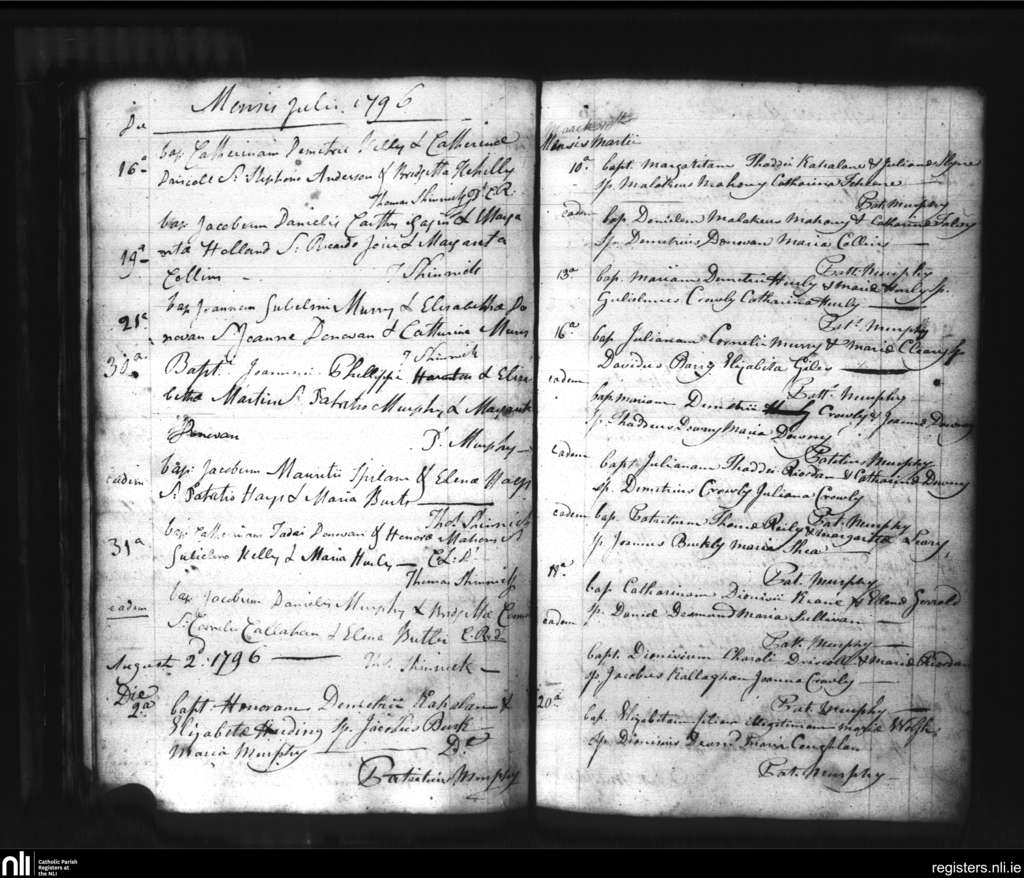 Mensis Julii 1796
Die
16a bap. Catherinam Demetrii Kelly & Catherine
Driscoll Sp. Stephano Anderson & Bridgetta Kehelly
Thomas Shinnick
bap. Jacobum Danielis Carthy & Marga
19a rita Holland Sp. Ricardo Joice & Margareta
Collins T Shinnick
21a bap. Joannem Gulielmi Murry & Elizabetha Do
novan Sp. Joanne Donovan & Catherine Murry
T Shinnick
30a Bapt. Joannem Phillippi & Eliza
betha Martin Sp. Patritio Murphy & Margarita
Donovan P. Murphy
eadem bap. Jacobum Mauritii & Elena Hays
Sp. Patritio Hays & Maria Burk
Thos. Shinnick
31a bap. Catherinam Tadei Donovan & Honora Mahony Sp
Gulielmo Kelly & Maria Hurly
Thomas Shinnick
eadem bap. Jacobum Danielis Murphy & Bridgetta
Sp. Cornelio Callaghan & Elena Butler
Thos. Shinnick
August 2d. 1796
Die
2a bapt. Honoram Demetrii & Elizabetha Harding sp. Jacobus Burk
Maria Murphy
Patritius Murphy
Mensis Martii
10a bapt. Margaritam Thaddei & Juliana
sp. Malakeus Mahony Catharina
Pat. Murphy
eadem bap. Donilem Malakeus Mahony & Catharina
sp. Demetrius Donovan Maria Collins
Patt. Murphy
13a bap. Mariam Demetrii Hurly & Maria Hurly sp.
Gulielmus Crowly Catharina Hurly
Patt. Murphy
16a bap. Julianam Cornelii Murry & Maria Cleary sp
Davidus Barry Elizabeta Giles
Patt. Murphy
eadem bap. Mariam Demetrii Crowly & Joanna Downy
sp. Thaddeus Downy Maria Downy
Patritius Murphy
eadem bapt. Julianam Thaddei Riordan & Catharina Downy
sp. Demetrius Crowly Juliana Crowly
Pat. Murphy
eadem bap. Patritium Thoma Reily & Margarita Leary
sp. Joannes Buckly Maria Shea
Pat. Murphy
18a bap. Catharinam Dionisii Keane & Elena Gerrald
sp. Daniel Desmond Maria Sullivan
Patt. Murphy
eadem bapt. Dionisium Charoli Driscoll & Maria Riordan
sp. Jacobus Kallaghan Joanna Crowly
Pat. Murphy
20a bap. Elizabetam filiam illegitimam Maria Wolfe
sp. Dionisius Maria Coughlan
Pat. Murphy
nli Catholic Parish
Registers at
the NLI
registers.nli.ie